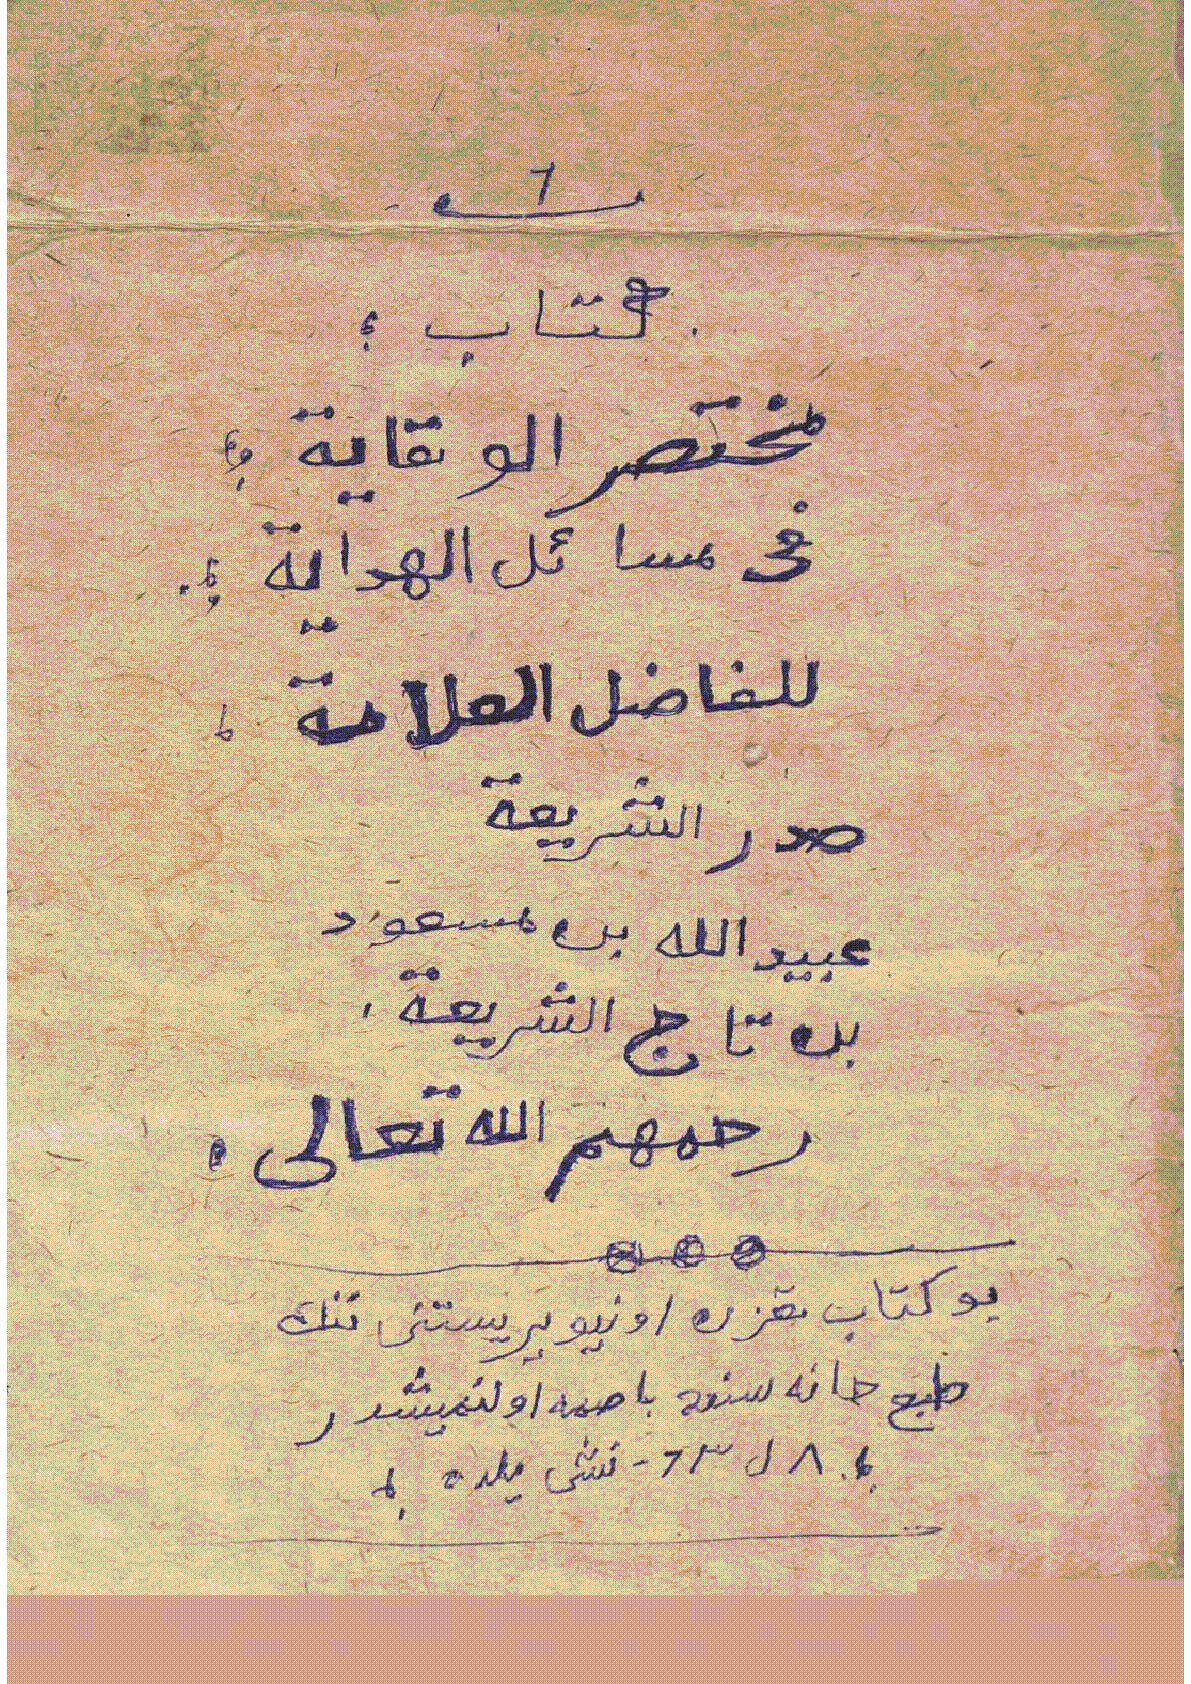 ٦
كتاب
مختصر الوقاية
فى مسائل الهداية
للفاضل العلامة
صدر الشريعة
عبيد الله بن مسعود
بن تاج الشريعة
رحمهم الله تعالى
بو كتاب قزان اونيويرستتى ننك
طبع خانه سنده باصمه اولنميشدر
نشى يلده